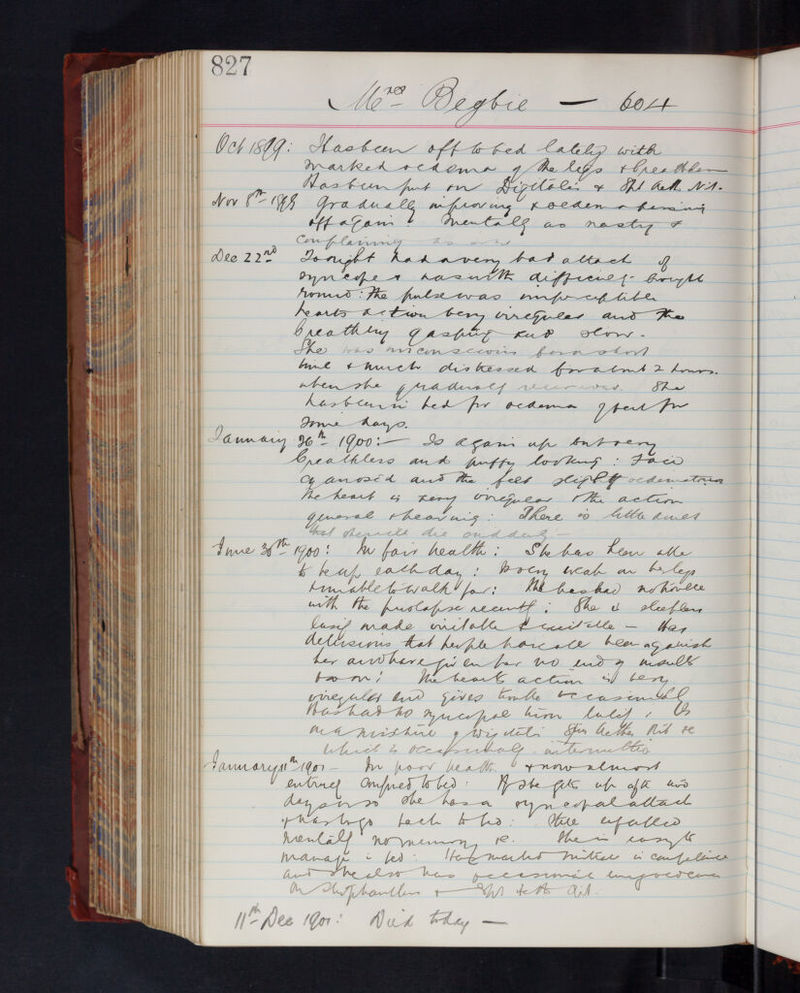 827
Mrs Begbie — 604
Oct 1899: Has been off to bed lately with
marked oedema of the legs & breathless
Has been put on Digitalis & Spt Aeth. Nit.
Nov 8th 1899 Gradually improving & oedema passing
off again. Mentally as nasty &
complaining as ever
Dec 22nd Tonight had a very bad attack of
syncope & was with difficulty brought
round: the pulse was imperceptible
hearts action very irregular and the
breathing gasping and slow.
She was unconscious for a short
time & much distressed for about 2 hours.
when she gradually recovered. She
has been in bed for oedema of feet for
some days.
January 26th 1900:— Is again up but very
breathless and puffy looking: Face
cyanosed and the feet slightly oedematous
The heart is very irregular & the action
general & heaving: There is little doubt
that she will die suddenly —
June 30th 1900: In fair health: She has been able
to be up each day: is very weak on her legs
& unable to walk far: She has had no trouble
with the prolapse recently: She is sleepless
easily made irritable & excitable — Has
delusions that people have all been against
her and have given her no end of insults
& so on: The hearts action is very
irregular and gives trouble occasionally
Has had no syncopal turn lately. Is
on a mixture of Digitalis Spir Aether Nit &c
which is occasionally intermitted
January 11th 1901 — In poor health & now almost
entirely confined to bed. If she gets up after two
days or so she has a syncopal attack
& has to go back to bed. Still enfeebled
mentally no memory &c. She is easy to
manage in bed. Has marked mitral incompetence
and she also has occasional
On Strophanthus & Spt Aeth Nit.
11th Dec 1901: Died today —